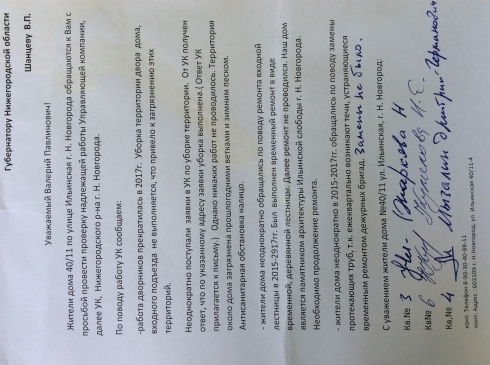 Губернатору Нижегородской области
Шанцеву В.П.
Уважаемый Валерий Павлинович!
Жители дома 40/11 по улице Ильинская г. Н. Новгорода обращаются к Вам с
просьбой провести проверку надлежащей работы Управляющей компании,
далее УК, Нижегородского р-на г. Н. Новгорода.
По поводу работу УК сообщаем:
-работа дворников прекратилась в 2017г. Уборка территории двора дома,
входного подъезда не выполняется, что привело к загрязнению этих
территорий.
Неоднократно поступали заявки в УК по уборке территории. От УК получен
ответ, что по указанному адресу заявки уборка выполнена.( Ответ УК
прилагается к письму.) Однако никаких работ не проводилось. Территория
около дома загрязнена прошлогодними ветками и зимним песком.
Антисанитарная обстановка налицо.
- жители дома неоднократно обращались по поводу ремонта входной
лестницы в 2015-2917гг. Был выполнен временный ремонт в виде
временной, деревянной лестницы. Далее ремонт не проводился. Наш дом
является памятником архитектуры Ильинской слободы г. Н. Новгорода.
Необходимо продолжение ремонта.
- жители дома неоднократно в 2015-2017гг. обращались по поводу замены
протекающих труб, т.к. ежеквартально возникают течи, устраняющиеся
временным ремонтом дежурных бригад. Замены не было.
С уважением жители дома №40/11 ул. Ильинская, г. Н. Новгород:
Кв.№ 3
Кв№ 6
Кв,№ 4 Дмитрий Германович
конт. Адрес: 603109 г. Н. Новгород, ул. Ильинская 40/11-4